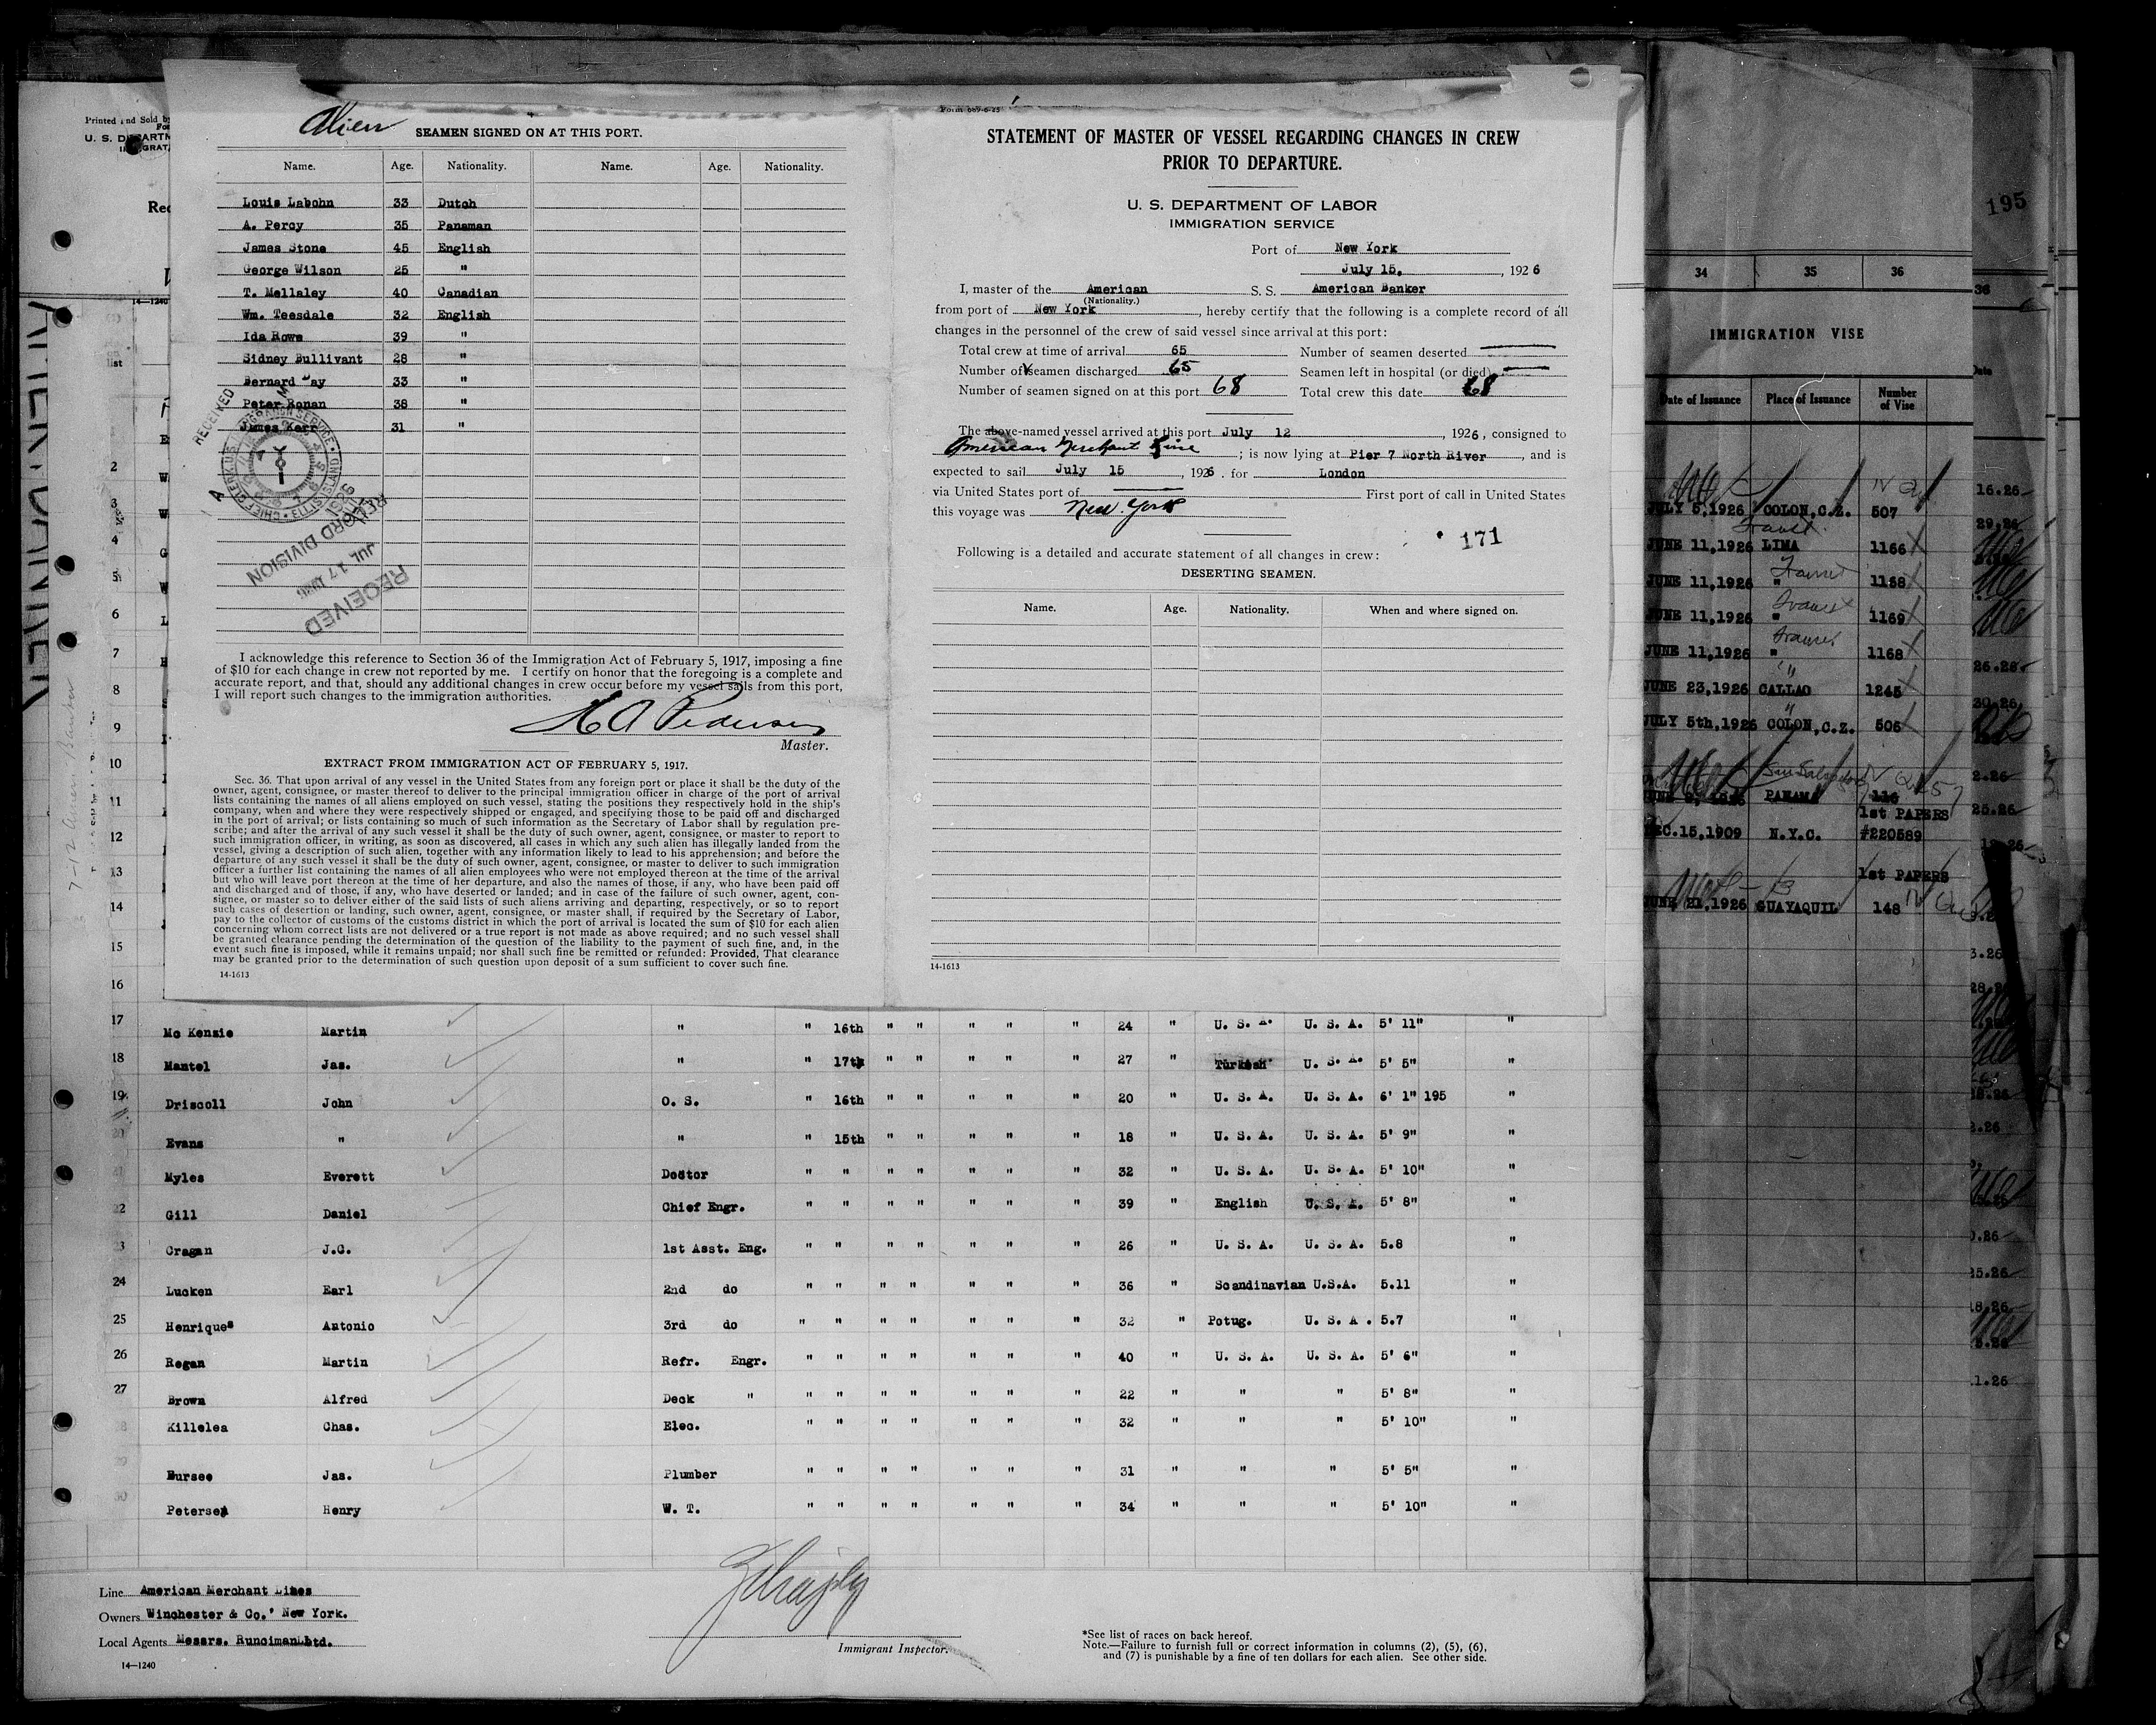 Alien
SEAMEN SIGNED ON AT THIS PORT.
Name. Age. Nationality. Name. Age. Nationality.
Louis Labohn 33 Dutch
A. Percy 35 Panaman
James Stone 45 English
George Wilson 25 "
T. Mellaley 40 Canadian
Wm. Teesdale 32 English
Ida Rowe 39 "
Sidney Bullivant 28 "
Bernard Day 33 "
Peter Ronan 38 "
James Kerr 31 "
RECEIVED
RECORD DIVISION
JUL 17 1926
RECEIVED
I acknowledge this reference to Section 36 of the Immigration Act of February 5, 1917, imposing a fine
of $10 for each change in crew not reported by me. I certify on honor that the foregoing is a complete and
accurate report, and that, should any additional changes in crew occur before my vessel sails from this port,
I will report such changes to the immigration authorities.
Master.
EXTRACT FROM IMMIGRATION ACT OF FEBRUARY 5, 1917.
Sec. 36. That upon arrival of any vessel in the United States from any foreign port or place it shall be the duty of the
owner, agent, consignee, or master thereof to deliver to the principal immigration officer in charge of the port of arrival
lists containing the names of all aliens employed on such vessel, stating the positions they respectively hold in the ship's
company, when and where they were respectively shipped or engaged, and specifying those to be paid off and discharged
in the port of arrival; or lists containing so much of such information as the Secretary of Labor shall by regulation pre-
scribe; and after the arrival of any such vessel it shall be the duty of such owner, agent, consignee, or master to report to
such immigration officer, in writing, as soon as discovered, all cases in which any such alien has illegally landed from the
vessel, giving a description of such alien, together with any information likely to lead to his apprehension; and before the
departure of any such vessel it shall be the duty of such owner, agent, consignee, or master to deliver to such immigration
officer a further list containing the names of all alien employees who were not employed thereon at the time of the arrival
but who will leave port thereon at the time of her departure, and also the names of those, if any, who have been paid off
and discharged and of those, if any, who have deserted or landed; and in case of the failure of such owner, agent, con-
signee, or master so to deliver either of the said lists of such aliens arriving and departing, respectively, or so to report
such cases of desertion or landing, such owner, agent, consignee, or master shall, if required by the Secretary of Labor,
pay to the collector of customs of the customs district in which the port of arrival is located the sum of $10 for each alien
concerning whom correct lists are not delivered or a true report is not made as above required; and no such vessel shall
be granted clearance pending the determination of the question of the liability to the payment of such fine, and, in the
event such fine is imposed, while it remains unpaid; nor shall such fine be remitted or refunded: Provided, That clearance
may be granted prior to the determination of such question upon deposit of a sum sufficient to cover such fine.
14-1613
STATEMENT OF MASTER OF VESSEL REGARDING CHANGES IN CREW
PRIOR TO DEPARTURE.
U. S. DEPARTMENT OF LABOR
IMMIGRATION SERVICE
Port of New York
July 15, , 1926
I, master of the American S. S. American Banker
(Nationality.)
from port of New York , hereby certify that the following is a complete record of all
changes in the personnel of the crew of said vessel since arrival at this port:
Total crew at time of arrival 65 Number of seamen deserted
Number of seamen discharged 65 Seamen left in hospital (or died)
Number of seamen signed on at this port 68 Total crew this date 68
The above-named vessel arrived at this port July 12 , 1926, consigned to
American Merchant Line ; is now lying at Pier 7 North River , and is
expected to sail July 15 , 1926 . for London
via United States port of First port of call in United States
this voyage was New York
171
Following is a detailed and accurate statement of all changes in crew:
DESERTING SEAMEN.
Name. Age. Nationality. When and where signed on.
14-1613
195
34 35 36
IMMIGRATION VISE
Date of Issuance Place of Issuance Number of Vise
JULY 5,1926 COLON,C.Z. 507
JUNE 11,1926 LIMA 1166
JUNE 11,1926 " 1158
JUNE 11,1926 " 1169
JUNE 11,1926 " 1168
JUNE 23,1926 CALLAO 1245
JULY 5th,1926 COLON,C.Z. 506
PANAMA 116
1st PAPERS
DEC.15,1909 N.Y.C. #220589
1st PAPERS
JUNE 21,1926 GUAYAQUIL 148
17 Mc Kenzie Martin " " 16th " " " " " 24 " U. S. A. U. S. A. 5' 11" "
18 Mantel Jas. " " 17th " " " " " 27 " Turkish U. S. A. 5' 5" "
19 Driscoll John O. S. " 16th " " " " " 20 " U. S. A. U. S. A. 6' 1" 195 "
20 Evans " " " 15th " " " " " 18 " U. S. A. U. S. A. 5' 9" "
21 Myles Everett Doctor " " " " " " " 32 " U. S. A. U. S. A. 5' 10" "
22 Gill Daniel Chief Engr. " " " " " " " 39 " English U. S. A. 5' 8" "
23 Cragan J.C. 1st Asst. Eng. " " " " " " " 26 " U. S. A. U. S. A. 5.8 "
24 Lucken Earl 2nd do " " " " " " " 36 " Scandinavian U.S.A. 5.11 "
25 Henriques Antonio 3rd do " " " " " " " 32 " Potug. U. S. A. 5.7 "
26 Regan Martin Refr. Engr. " " " " " " " 40 " U. S. A. U. S. A. 5' 6" "
27 Brown Alfred Deck " " " " " " " " 22 " " " 5' 8" "
28 Killelea Chas. Elec. " " " " " " " 32 " " " 5' 10" "
29 Bursee Jas. Plumber " " " " " " " 31 " " " 5' 5" "
30 Petersen Henry W. T. " " " " " " " 34 " " " 5' 10" "
Line American Merchant Lines
Owners Winchester & Co.' New York.
Local Agents Messrs. Runciman Ltd.
14—1240
Immigrant Inspector.
*See list of races on back hereof.
Note.—Failure to furnish full or correct information in columns (2), (5), (6),
and (7) is punishable by a fine of ten dollars for each alien. See other side.